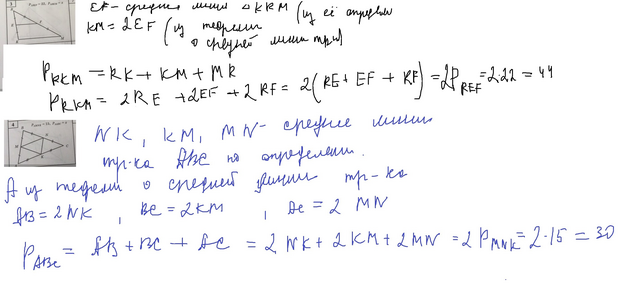 EF - средняя линия △ KRM (из её определ
KM = 2EF (из теоремы
о средней линии тр-ка)
P_RKM = RK + KM + MR
P_RKM = 2RE + 2EF + 2RF = 2(RE + EF + RF) = 2P_REF = 2·22 = 44
4
NK, KM, MN - средние линии
тр-ка ABC по определению.
А из теоремы о средней линии тр-ка
AB = 2NK, BC = 2KM, AC = 2MN
P_ABC = AB + BC + AC = 2NK + 2KM + 2MN = 2P_MNK = 2·15 = 30